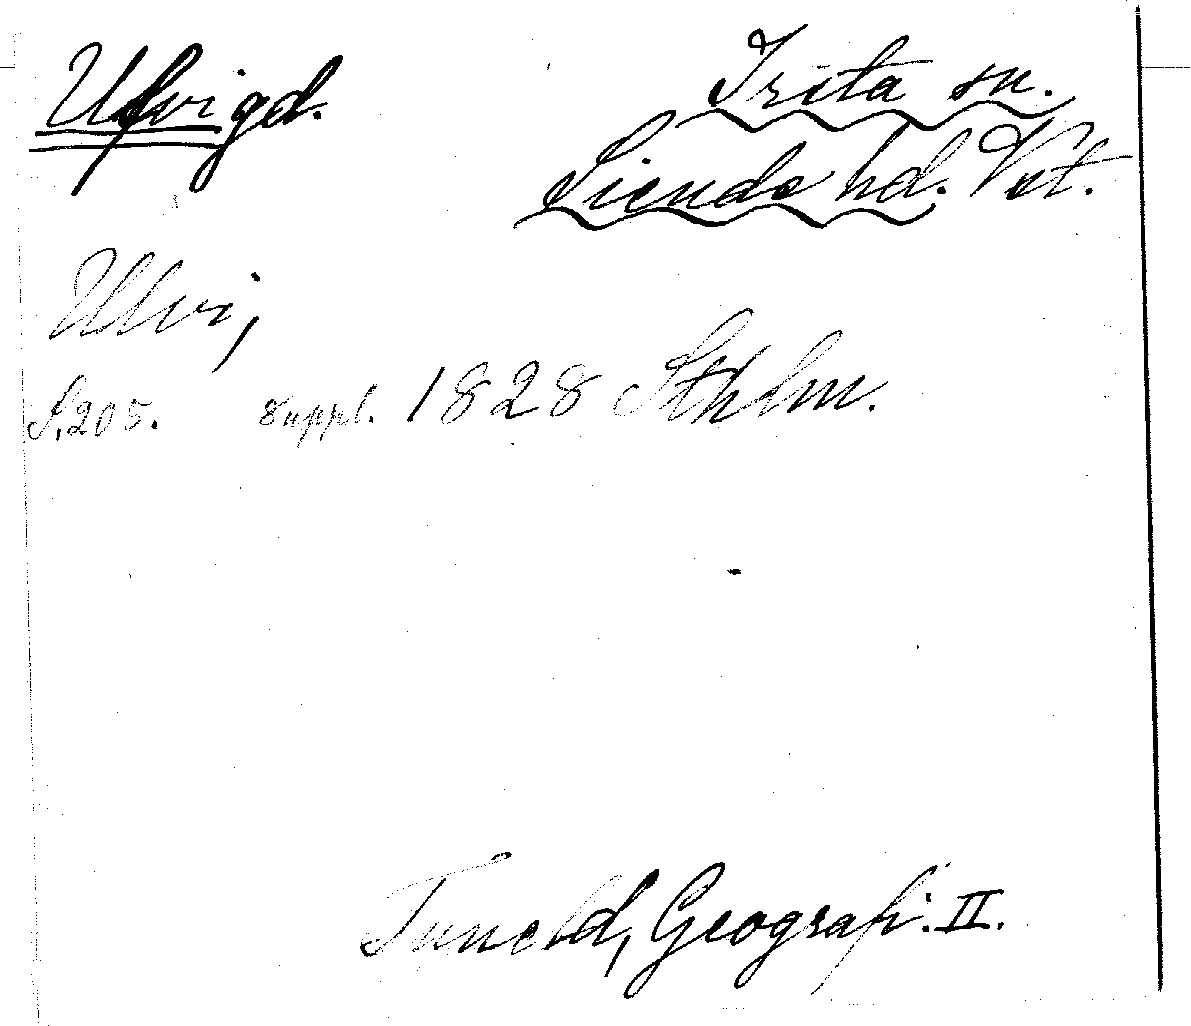 Ulvi gd.
Irsta sn.
Siende hd. Vst.
Ulvi,
S. 205. Suppl. 1828 Sthlm.
Tuneld, Geografi. II.